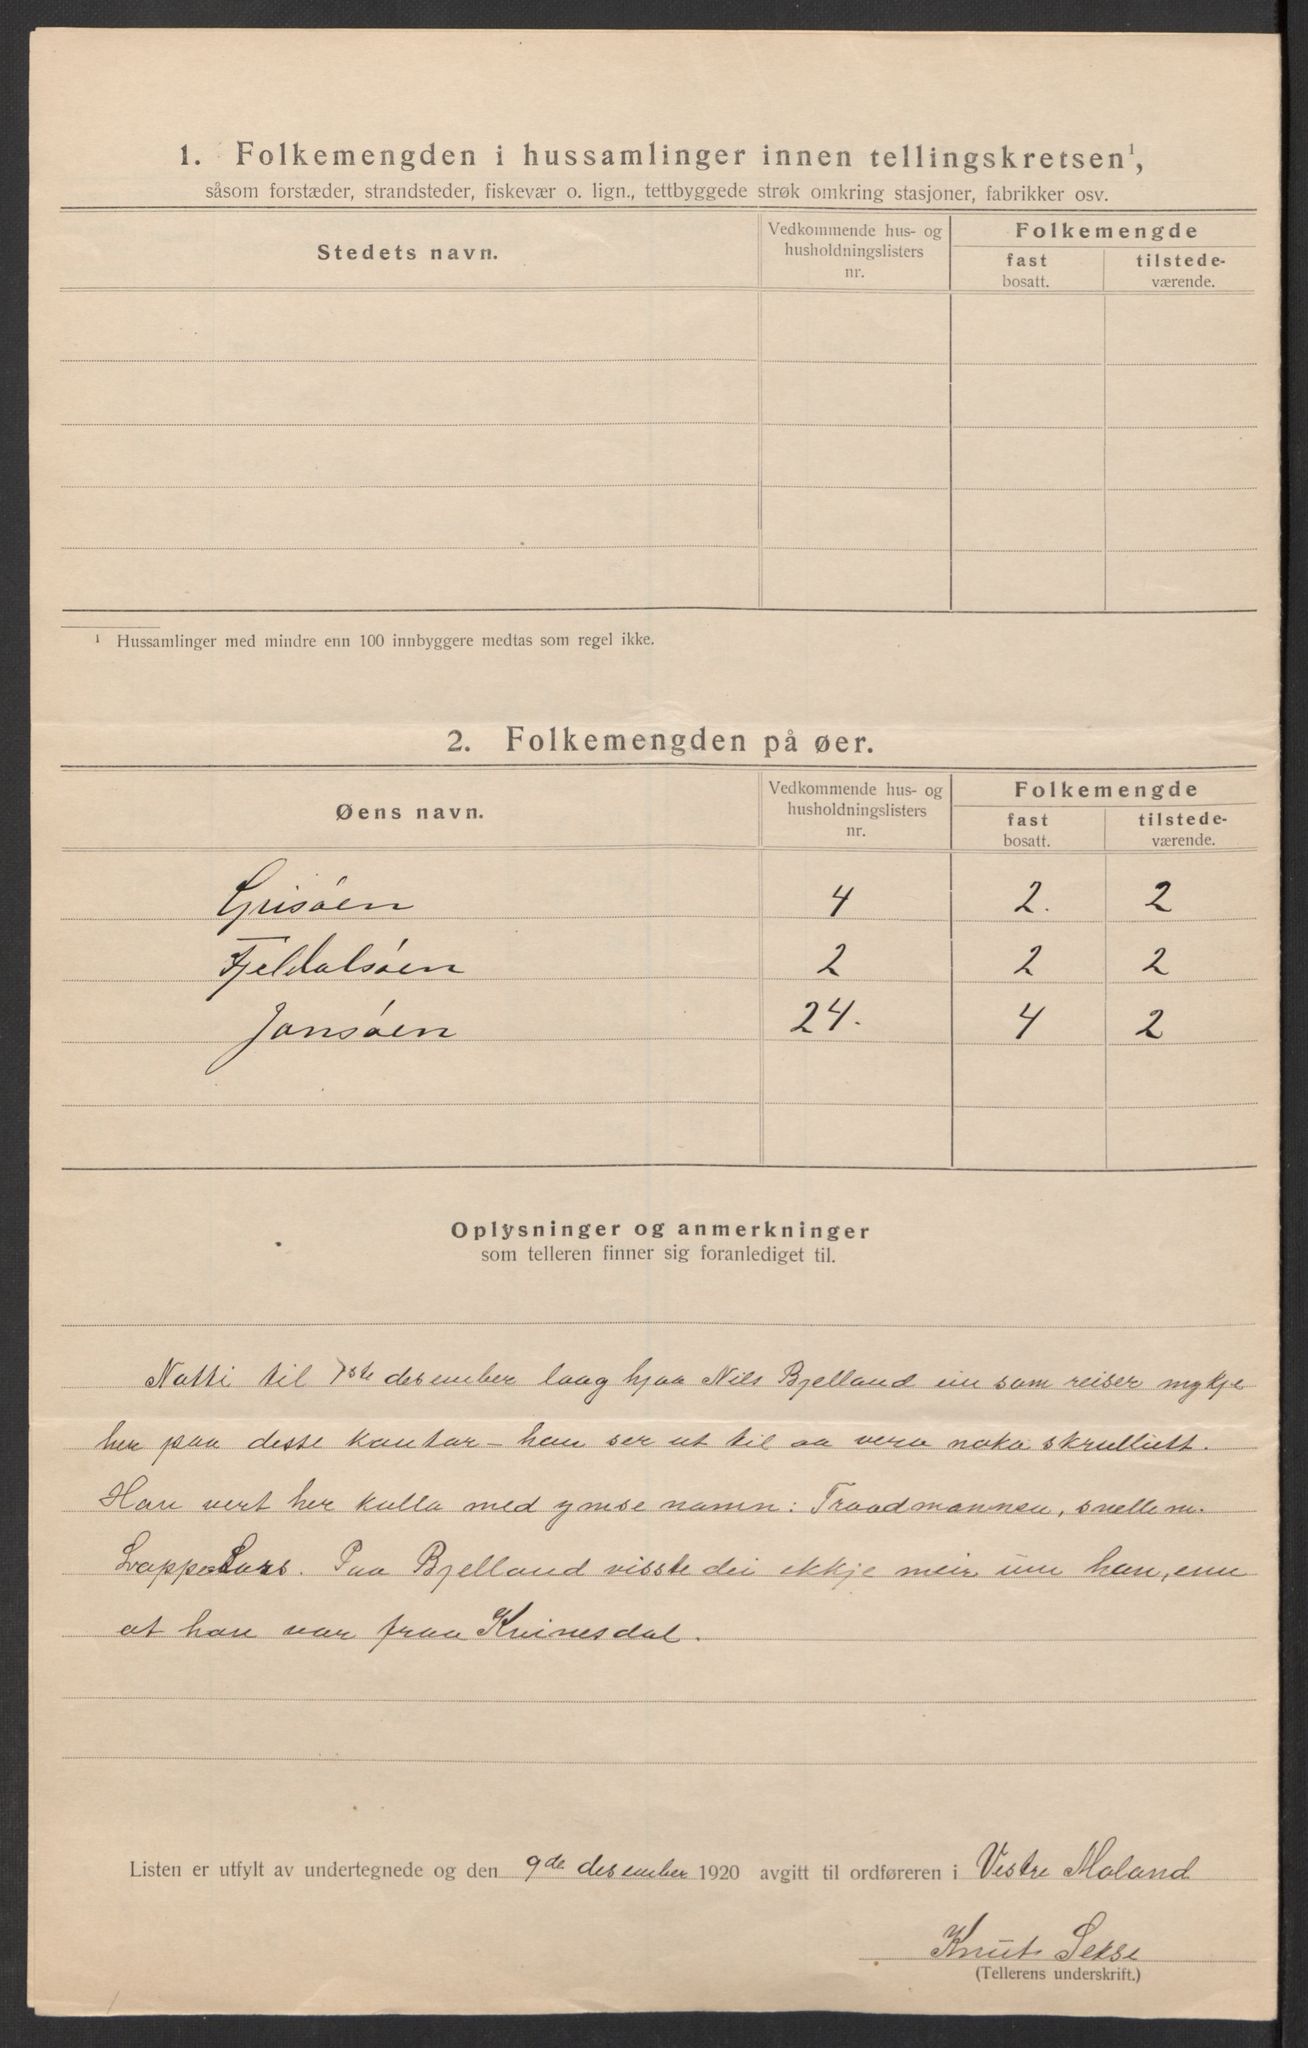 1. Folkemengden i hussamlinger innen tellingskretsen¹,
såsom forstæder, strandsteder, fiskevær o. lign., tettbyggede strøk omkring stasjoner, fabrikker osv.
Stedets navn.
Vedkommende hus- og husholdningslisters nr.
Folkemengde
fast bosatt.
tilstede-værende.
¹ Hussamlinger med mindre enn 100 innbyggere medtas som regel ikke.
2. Folkemengden på øer.
Øens navn.
Vedkommende hus- og husholdningslisters nr.
Folkemengde
fast bosatt.
tilstede-værende.
Grisøen 4 2. 2
Fjeldalsøen 2 2 2
Jonsøen 24. 4 2
Oplysninger og anmerkninger
som telleren finner sig foranlediget til.
Natti til 1ste desember laag hjaa Nils Bjelland ein som reiser mykje
her paa desse kantar – han ser ut til aa vera noko skrullutt.
Han vert her kalla med ymse namn: Traadmannen, snelle m.
Lappe Lars. Paa Bjelland visste dei ikkje meir um han, enn
at han var fraa Kvinesdal.
Listen er utfylt av undertegnede og den 9de desember 1920 avgitt til ordføreren i Vestre Moland
Knut Sekse
(Tellerens underskrift.)